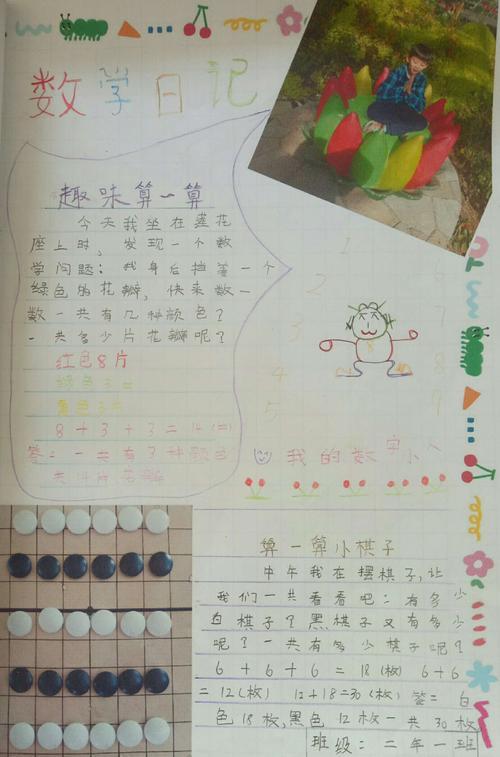 数学日记
趣味算一算
今天我坐在莲花
座上时，发现一个数
学问题：我身后挡着一个
绿色的花瓣，快来数一
数一共有几种颜色？
一共多少片花瓣呢？
红色8片
绿色3片
黄色3片
8+3+3=14(片)
答：一共有3种颜色
共14片花瓣
1
2
3
4
5
6
7
8
9
8
我的数字小人
算一算小棋子
中午我在摆棋子，让
我们一共看看吧：有多少
白棋子？黑棋子又有多少
呢？一共有多少棋子呢？
6+6+6=18(枚) 6+6
=12(枚) 12+18=30(枚) 答：白
色18枚，黑色12枚一共30枚
班级：二年一班